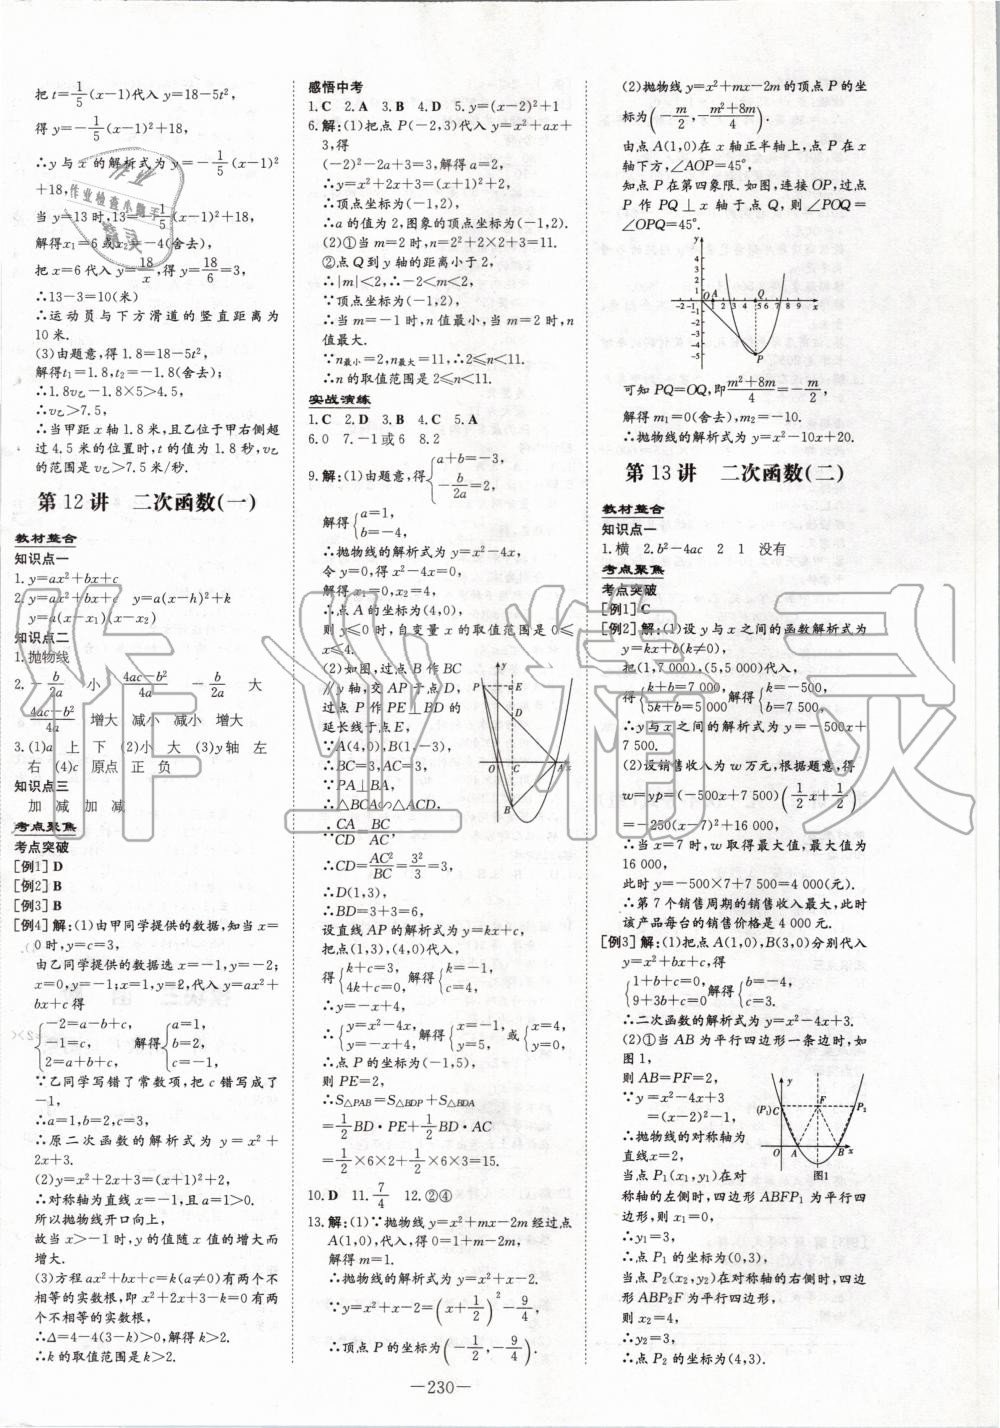 把t=1/5(x-1)代入y=18-5t²,
得y=-1/5(x-1)²+18,
∴y与x的解析式为y=-1/5(x-1)²
+18,
当y=13时,13=-1/5(x-1)²+18,
解得x₁=6或x₂=-4(舍去);
把x=6代入y=18/x,得y=18/6=3,
∴13-3=10(米)
∴运动员与下方滑道的竖直距离为
10米.
(3)由题意,得1.8=18-5t²,
解得t₁=1.8,t₂=-1.8(舍去);
∴1.8v乙-1.8×5>4.5,
∴v乙>7.5,
∴当甲距x轴1.8米,且乙位于甲右侧超
过4.5米的位置时,t的值为1.8秒,v乙
的范围是v乙>7.5米/秒.
第12讲 二次函数(一)
教材整合
知识点一
1.y=ax²+bx+c
2.y=ax²+bx+c y=a(x-h)²+k
y=a(x-x₁)(x-x₂)
知识点二
1.抛物线
2.-b/2a 小 4ac-b²/4a -b/2a 大
4ac-b²/4a 增大 减小 减小 增大
3.(1)a 上 下 (2)小 大 (3)y轴 左
右 (4)c 原点 正 负
知识点三
加 减 加 减
考点聚焦
考点突破
[例1]D
[例2]B
[例3]B
[例4]解:(1)由甲同学提供的数据,知当x=
0时,y=c=3,
由乙同学提供的数据选x=-1,y=-2;
x=0,y=-1;x=1,y=2,代入y=ax²+
bx+c得
{-2=a-b+c, -1=c, 2=a+b+c, 解得{a=1, b=2, c=-1.
∵乙同学写错了常数项,把c错写成了
-1,
∴a=1,b=2,c=3,
∴原二次函数的解析式为y=x²+
2x+3.
(2)y=x²+2x+3=(x+1)²+2,
∴对称轴为直线x=-1,且a=1>0.
所以抛物线开口向上,
故当x>-1时,y的值随x值的增大而
增大.
(3)方程ax²+bx+c=k(a≠0)有两个不
相等的实数根,即x²+2x+3-k=0有两
个不相等的实数根,
∴Δ=4-4(3-k)>0,解得k>2.
∴k的取值范围是k>2.
感悟中考
1.C 2.A 3.B 4.D 5.y=(x-2)²+1
6.解:(1)把点P(-2,3)代入y=x²+ax+
3,得
(-2)²-2a+3=3,解得a=2,
∴y=x²+2x+3=(x+1)²+2,
∴顶点坐标为(-1,2),
∴a的值为2,图象的顶点坐标为(-1,2).
(2)①当m=2时,n=2²+2×2+3=11.
②点Q到y轴的距离小于2,
∴|m|<2,∴-2<m<2,
∵顶点坐标为(-1,2),
∴当m=-1时,n值最小,当m=2时,n
值最大.
∵n最小=2,n最大=11,∴2≤n<11.
∴n的取值范围是2≤n<11.
实战演练
1.C 2.D 3.B 4.C 5.A
6.0 7.-1或6 8.2
9.解:(1)由题意,得{a+b=-3, -b/2a=2,
解得{a=1, b=-4,
∴抛物线的解析式为y=x²-4x,
令y=0,得x²-4x=0,
解得x₁=0,x₂=4,
∴点A的坐标为(4,0),
则y≤0时,自变量x的取值范围是0≤
x≤4.
(2)如图,过点B作BC
∥y轴,交AP于点D,
过点P作PE⊥BD的
延长线于点E,
∵A(4,0),B(1,-3),
∴BC=3,AC=3,
∵PA⊥BA,
∴△BCA∽△ACD,
∴CA/CD=BC/AC,
∴CD=AC²/BC=3²/3=3,
∴D(1,3),
∴BD=3+3=6,
设直线AP的解析式为y=kx+c,
把点(1,3),(4,0)代入,
得{k+c=3, 4k+c=0, 解得{k=-1, c=4,
∴y=-x+4,
∴{y=x²-4x, y=-x+4, 解得{x=-1, y=5, 或{x=4, y=0,
∴点P的坐标为(-1,5),
则PE=2,
∴S△PAB=S△BDP+S△BDA
=1/2BD·PE+1/2BD·AC
=1/2×6×2+1/2×6×3=15.
10.D 11.7/4 12.②④
13.解:(1)∵抛物线y=x²+mx-2m经过点
A(1,0),代入,得0=1+m-2m,
解得m=1.
∴抛物线的解析式为y=x²+x-2.
∵y=x²+x-2=(x+1/2)²-9/4,
∴顶点P的坐标为(-1/2,-9/4).
y
P E
D
O C A x
B
(2)抛物线y=x²+mx-2m的顶点P的坐
标为(-m/2,-m²+8m/4).
由点A(1,0)在x轴正半轴上,点P在x
轴下方,∠AOP=45°,
知点P在第四象限.如图,连接OP,过点
P作PQ⊥x轴于点Q,则∠POQ=
∠OPQ=45°.
y
4
3
2
1
-2 -1 O A 1 2 3 4 5 6 7 8 9 x
Q
-1
-2
-3
-4
-5
P
可知PQ=OQ,即m²+8m/4=-m/2,
解得m₁=0(舍去),m₂=-10.
∴抛物线的解析式为y=x²-10x+20.
第13讲 二次函数(二)
教材整合
知识点一
1.横 2.b²-4ac 2 1 没有
考点聚焦
考点突破
[例1]C
[例2]解:(1)设y与x之间的函数解析式为
y=kx+b(k≠0),
把(1,7 000),(5,5 000)代入,
得{k+b=7 000, 5k+b=5 000 解得{k=-500, b=7 500,
∴y与x之间的解析式为y=-500x+
7 500.
(2)设销售收入为w万元,根据题意,得
w=yp=(-500x+7500)(1/2x+1/2)
=-250(x-7)²+16 000,
∴当x=7时,w取得最大值,最大值为
16 000,
此时y=-500×7+7 500=4 000(元).
∴第7个销售周期的销售收入最大,此时
该产品每台的销售价格是4 000元.
[例3]解:(1)把点A(1,0),B(3,0)分别代入
y=x²+bx+c,得
{1+b+c=0, 9+3b+c=0 解得{b=-4, c=3.
∴二次函数的解析式为y=x²-4x+3.
(2)①当AB为平行四边形一条边时,如
图1,
则AB=PF=2,
∵y=x²-4x+3
=(x-2)²-1,
∴抛物线的对称轴为
直线x=2,
当点P₁(x₁,y₁)在对
称轴的左侧时,四边形ABFP₁为平行四
边形,则x₁=0,
∴y₁=3,
∴点P₁的坐标为(0,3),
当点P₂(x₂,y₂)在对称轴的右侧时,四边
形ABP₂F为平行四边形,
则x₂=4,
∴y₂=3,
∴点P₂的坐标为(4,3).
y
(P₁)C F P₂
O A B x
图1
—230—
作业精灵
作业
作业检查小助手
精灵